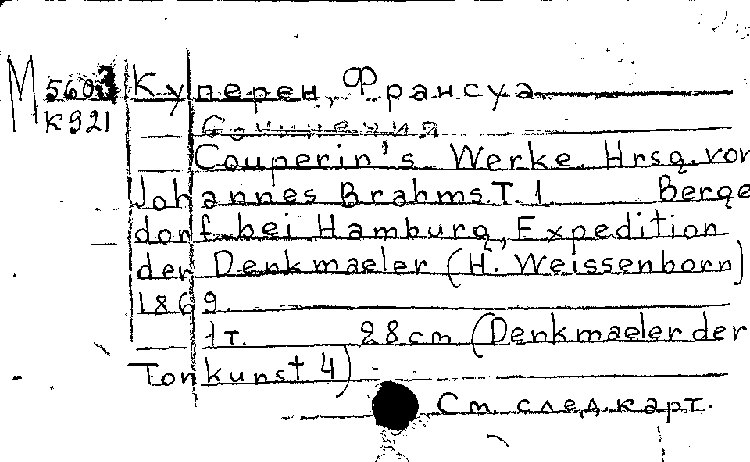 М Куперен, Франсуа
К921 Сочинения
Couperin's Werke. Hrsg. von
Johannes Brahms. T. 1 Berge
dorf bei Hamburg, Expedition
der Denkmaeler (H. Weissenborn)
1869
1т. 28cm (Denkmaeler der
Tonkunst 4)
См. след. карт.